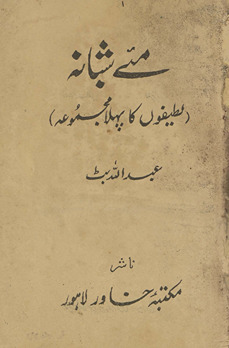 ۱
مئے شبانہ
(لطیفوں کا پہلا مجموعہ)
عبداللہ بٹ
ناشر
مکتبۂ خاور لاہور